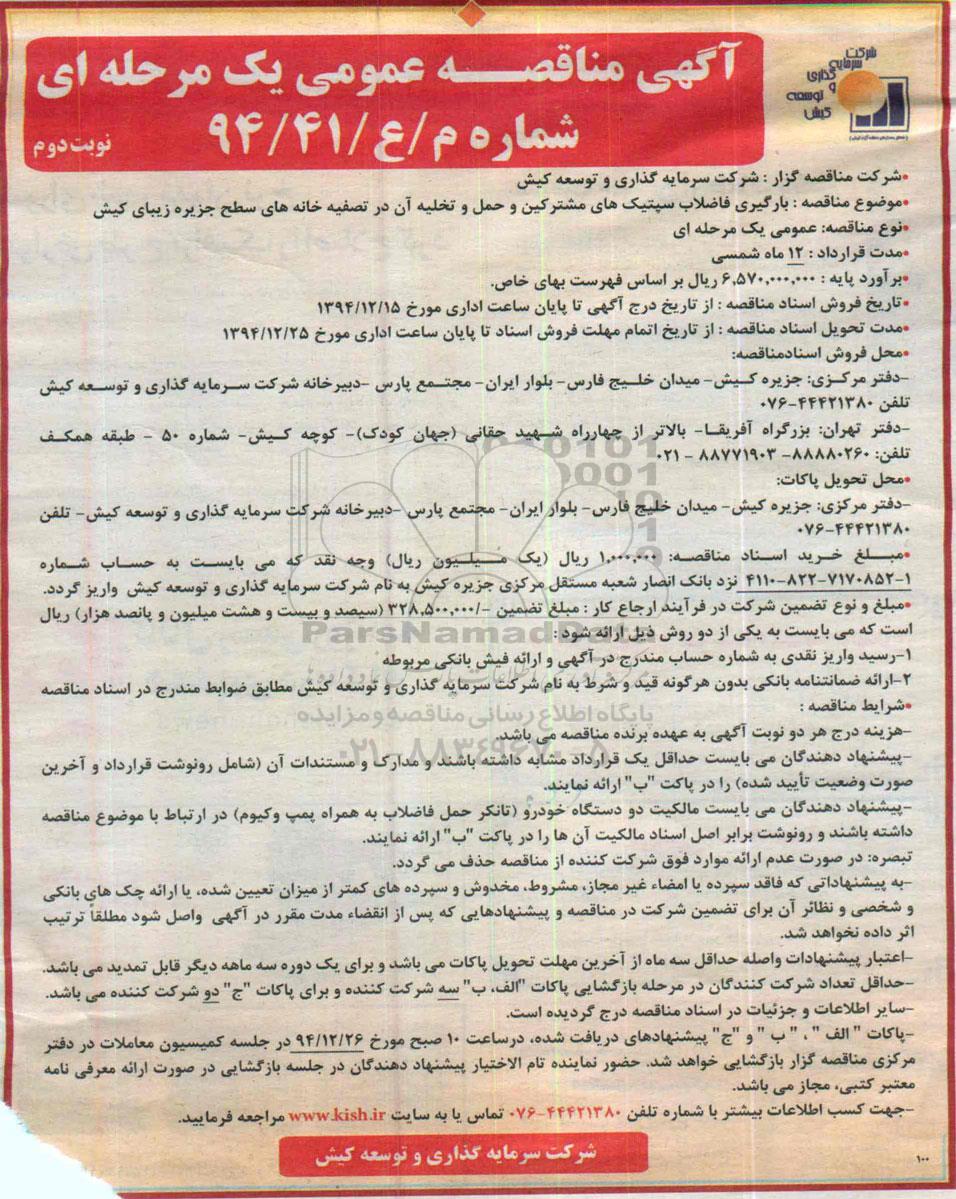 شرکت
سرمایه
گذاری
و
توسعه
کیش
آگهی مناقصه عمومی یک مرحله ای
شماره م/ع/۹۴/۴۱
نوبت دوم
•شرکت مناقصه گزار : شرکت سرمایه گذاری و توسعه کیش
•موضوع مناقصه : بارگیری فاضلاب سپتیک های مشترکین و حمل و تخلیه آن در تصفیه خانه های سطح جزیره زیبای کیش
•نوع مناقصه: عمومی یک مرحله ای
•مدت قرارداد : ۱۲ ماه شمسی
•برآورد پایه : ۶,۵۷۰,۰۰۰,۰۰۰ ریال بر اساس فهرست بهای خاص.
•تاریخ فروش اسناد مناقصه : از تاریخ درج آگهی تا پایان ساعت اداری مورخ ۱۳۹۴/۱۲/۱۵
•مدت تحویل اسناد مناقصه : از تاریخ اتمام مهلت فروش اسناد تا پایان ساعت اداری مورخ ۱۳۹۴/۱۲/۲۵
•محل فروش اسنادمناقصه:
-دفتر مرکزی: جزیره کیش- میدان خلیج فارس- بلوار ایران- مجتمع پارس -دبیرخانه شرکت سرمایه گذاری و توسعه کیش
تلفن ۴۴۴۲۱۳۸۰-۰۷۶
-دفتر تهران: بزرگراه آفریقا- بالاتر از چهارراه شهید حقانی (جهان کودک)- کوچه کیش- شماره ۵۰ - طبقه همکف
تلفن: ۸۸۸۸۰۲۶۰- ۸۸۷۷۱۹۰۳ - ۰۲۱
•محل تحویل پاکات:
-دفتر مرکزی: جزیره کیش- میدان خلیج فارس- بلوار ایران- مجتمع پارس -دبیرخانه شرکت سرمایه گذاری و توسعه کیش- تلفن
۴۴۴۲۱۳۸۰-۰۷۶
•مبلغ خرید اسناد مناقصه: ۱,۰۰۰,۰۰۰ ریال (یک میلیون ریال) وجه نقد که می بایست به حساب شماره
۴۱۱۰-۸۲۲-۷۱۷۰۸۵۲-۱ نزد بانک انصار شعبه مستقل مرکزی جزیره کیش به نام شرکت سرمایه گذاری و توسعه کیش واریز گردد.
•مبلغ و نوع تضمین شرکت در فرآیند ارجاع کار : مبلغ تضمین -/۳۲۸,۵۰۰,۰۰۰ (سیصد و بیست و هشت میلیون و پانصد هزار) ریال
است که می بایست به یکی از دو روش ذیل ارائه شود :
۱-رسید واریز نقدی به شماره حساب مندرج در آگهی و ارائه فیش بانکی مربوطه
۲-ارائه ضمانتنامه بانکی بدون هرگونه قید و شرط به نام شرکت سرمایه گذاری و توسعه کیش مطابق ضوابط مندرج در اسناد مناقصه
•شرایط مناقصه :
-هزینه درج هر دو نوبت آگهی به عهده برنده مناقصه می باشد.
-پیشنهاد دهندگان می بایست حداقل یک قرارداد مشابه داشته باشند و مدارک و مستندات آن (شامل رونوشت قرارداد و آخرین
صورت وضعیت تأیید شده) را در پاکت "ب" ارائه نمایند.
-پیشنهاد دهندگان می بایست مالکیت دو دستگاه خودرو (تانکر حمل فاضلاب به همراه پمپ وکیوم) در ارتباط با موضوع مناقصه
داشته باشند و رونوشت برابر اصل اسناد مالکیت آن ها را در پاکت "ب" ارائه نمایند.
تبصره: در صورت عدم ارائه موارد فوق شرکت کننده از مناقصه حذف می گردد.
-به پیشنهاداتی که فاقد سپرده یا امضاء غیر مجاز، مشروط، مخدوش و سپرده های کمتر از میزان تعیین شده، یا ارائه چک های بانکی
و شخصی و نظائر آن برای تضمین شرکت در مناقصه و پیشنهادهایی که پس از انقضاء مدت مقرر در آگهی واصل شود مطلقاً ترتیب
اثر داده نخواهد شد.
-اعتبار پیشنهادات واصله حداقل سه ماه از آخرین مهلت تحویل پاکات می باشد و برای یک دوره سه ماهه دیگر قابل تمدید می باشد.
-حداقل تعداد شرکت کنندگان در مرحله بازگشایی پاکات "الف، ب" سه شرکت کننده و برای پاکات "ج" دو شرکت کننده می باشد.
-سایر اطلاعات و جزئیات در اسناد مناقصه درج گردیده است.
-پاکات " الف " ، " ب " و "ج" پیشنهادهای دریافت شده، درساعت ۱۰ صبح مورخ ۹۴/۱۲/۲۶ در جلسه کمیسیون معاملات در دفتر
مرکزی مناقصه گزار بازگشایی خواهد شد. حضور نماینده تام الاختیار پیشنهاد دهندگان در جلسه بازگشایی در صورت ارائه معرفی نامه
معتبر کتبی، مجاز می باشد.
-جهت کسب اطلاعات بیشتر با شماره تلفن ۴۴۴۲۱۳۸۰-۰۷۶ تماس یا به سایت www.kish.ir مراجعه فرمایید.
شرکت سرمایه گذاری و توسعه کیش
۱۰۰
ParsNamadData
پایگاه اطلاع رسانی مناقصه و مزایده
۰۲۱-۸۸۳۴۹۶۷۰-۵